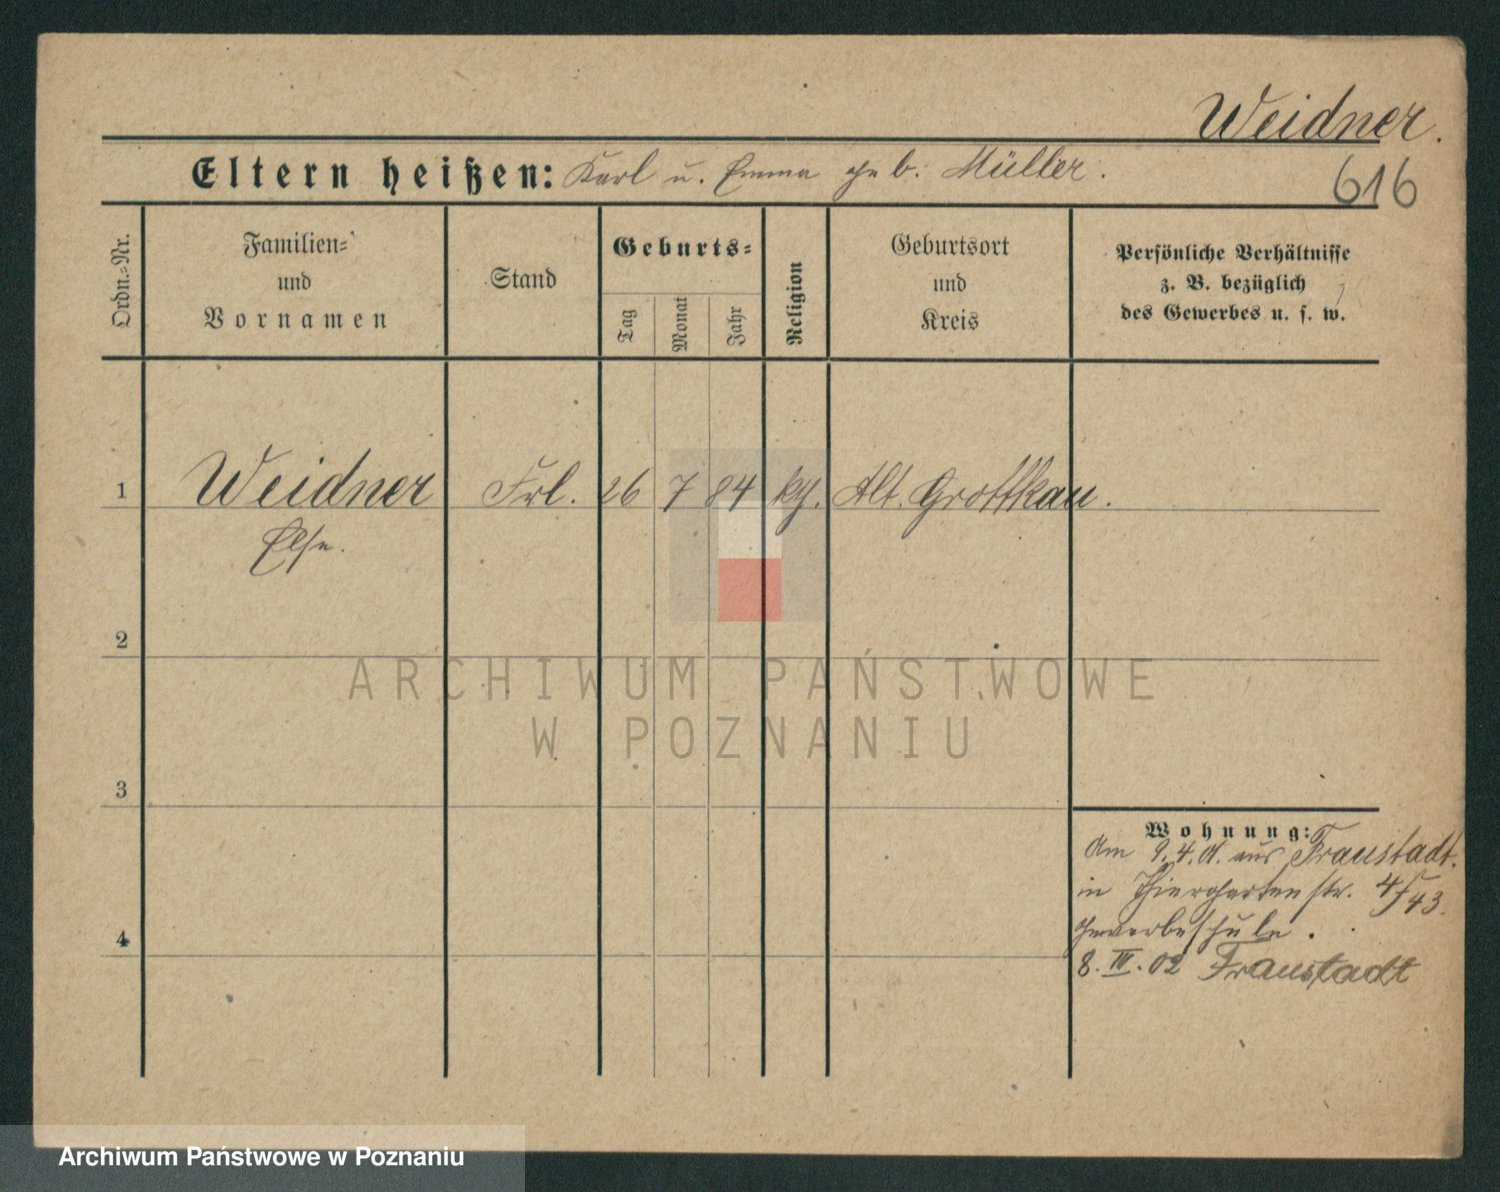 Weidner.
Eltern heißen: Karl u. Emma geb. Müller.
616
Ordn.=Nr.
Familien=
und
Vornamen
Stand
Geburts=
Tag
Monat
Jahr
Religion
Geburtsort
und
Kreis
Persönliche Verhältnisse
z. B. bezüglich
des Gewerbes u. s. w.
1 Weidner Frl. 26 7 84 Alt. Grottkau.
Else.
2
3
4
Wohnung:
Am 9.4. aus Fraustadt.
in Thiergartenstr. 4
Gewerbeschule.
8. IV. 02 Fraustadt
ARCHIWUM PAŃSTWOWE
W POZNANIU
Archiwum Państwowe w Poznaniu